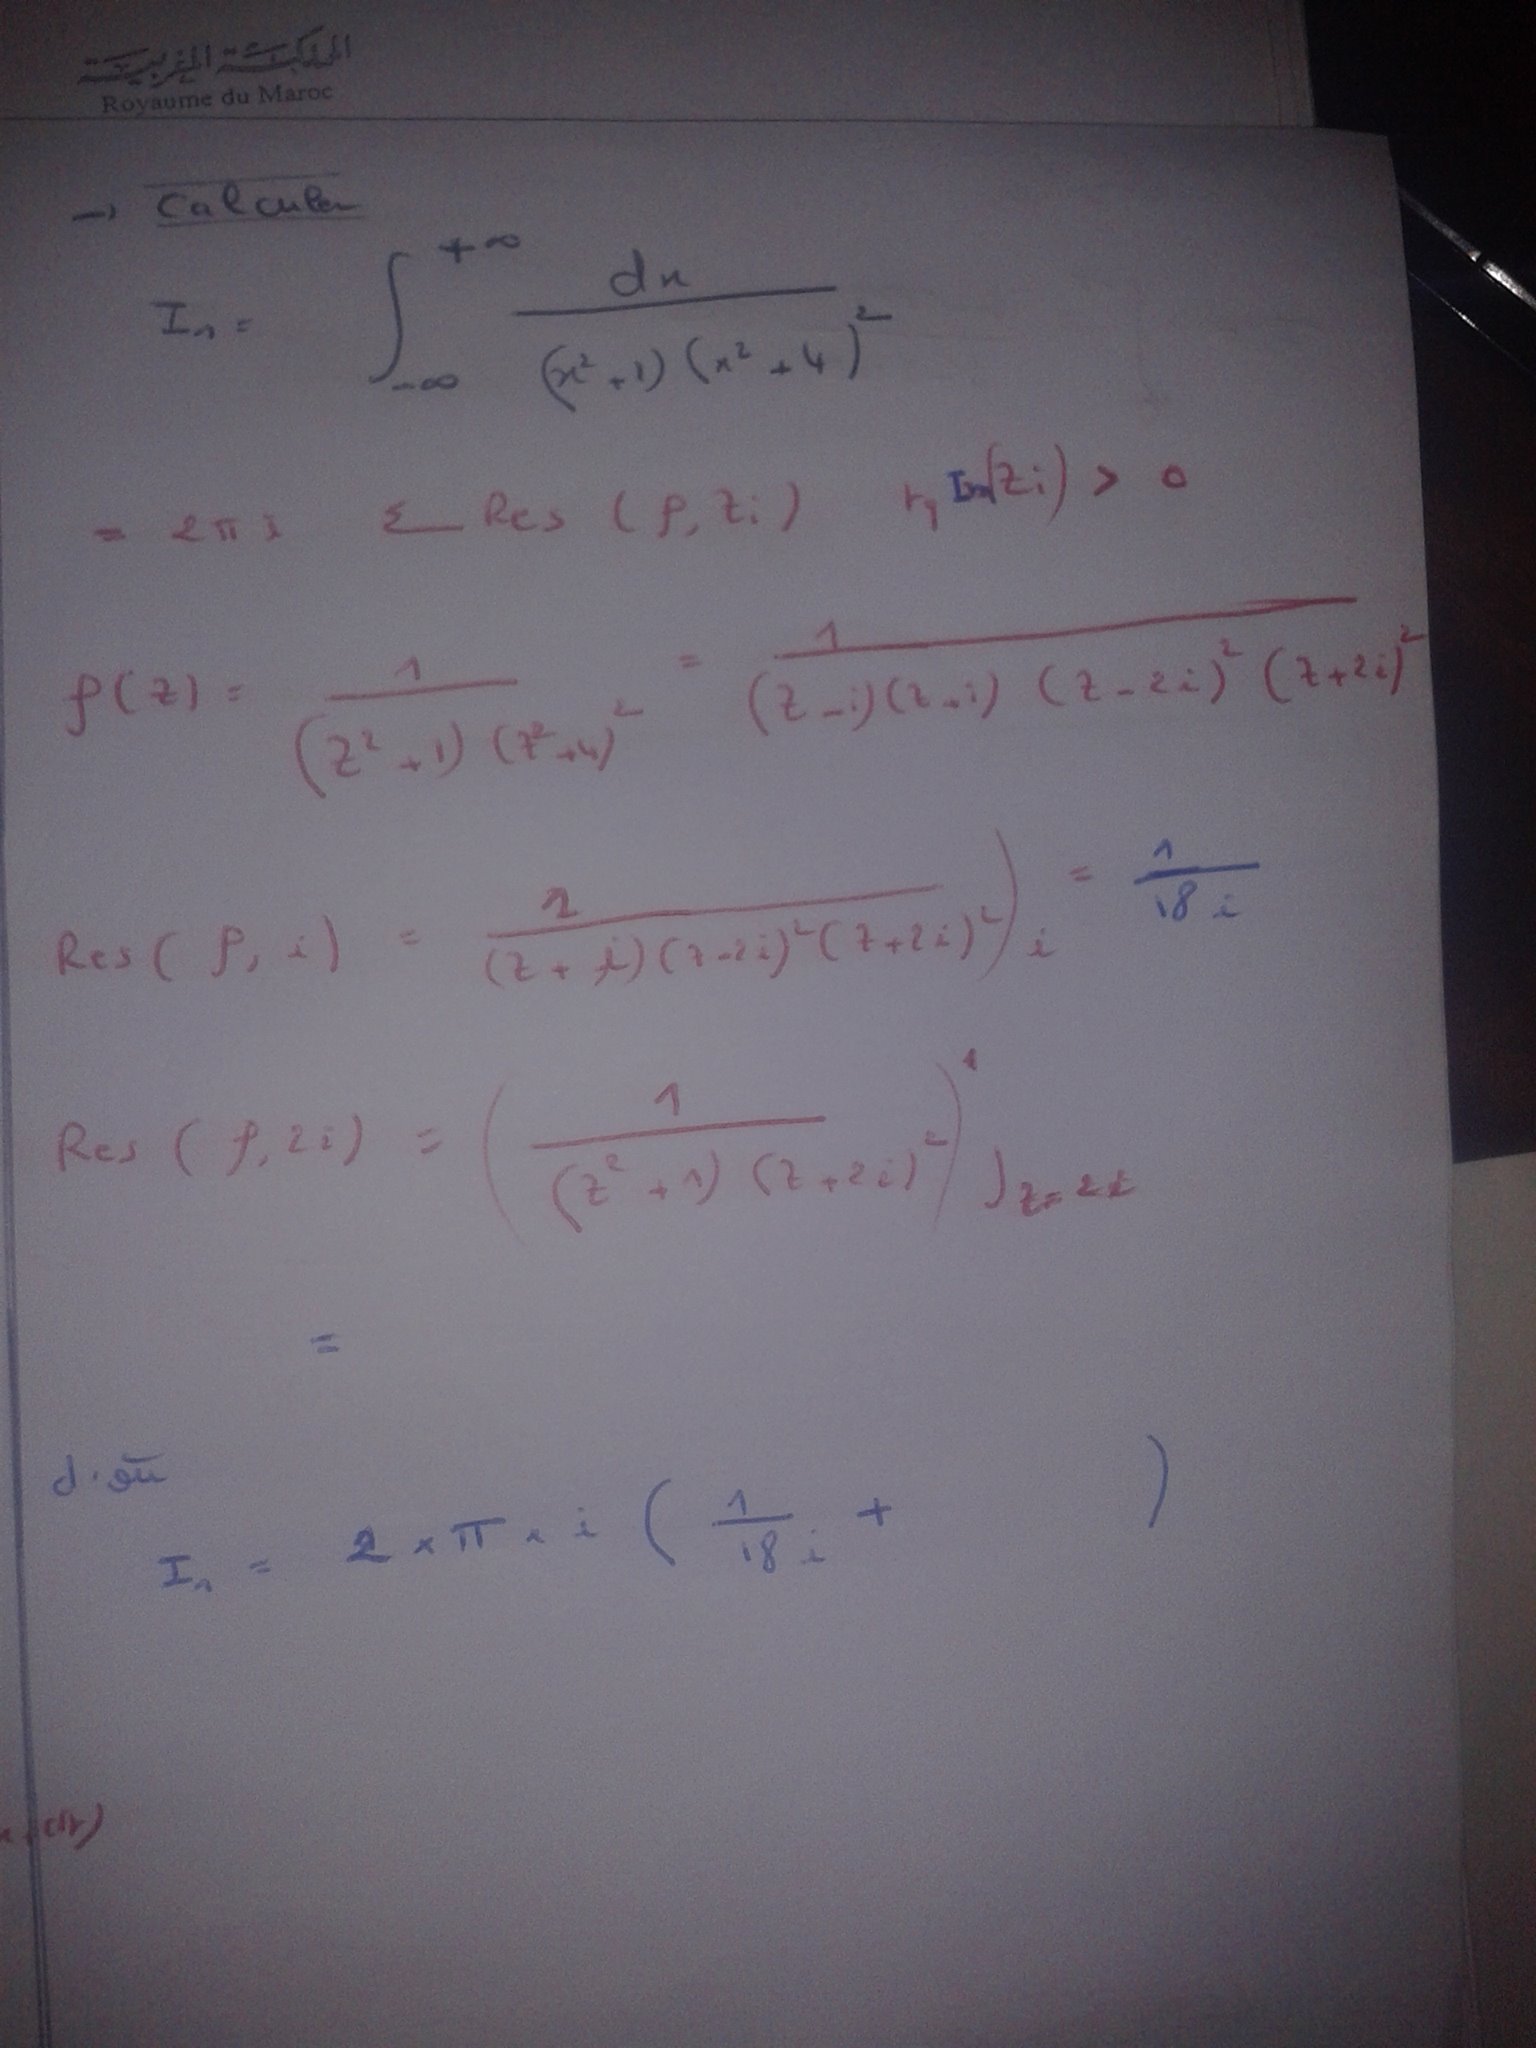 المملكة المغربية
Royaume du Maroc
→ Calculer
I₁ = ∫_{-∞}^{+∞} dx / (x² + 1) (x² + 4)²
= 2πi Σ Res (f, zi) tq Im(zi) > 0
f(z) = 1 / (z² + 1) (z² + 4)² = 1 / (z - i)(z + i) (z - 2i)² (z + 2i)²
Res (f, i) = 1 / (z + i)(z - 2i)² (z + 2i)² )i = 1 / 18 i
Res (f, 2i) = ( 1 / (z² + 1) (z + 2i)² )' )z = 2i
=
d'où
I₁ = 2 × π × i ( 1 / 18 i + )